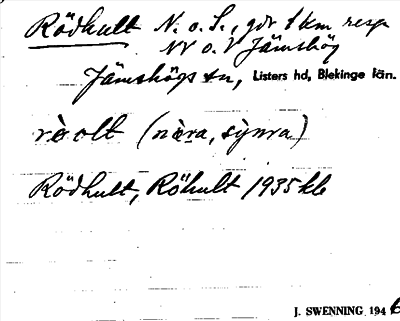 Rödhult N. o. S., gdr 1 km resp.
NV o. V Jämshög
Jämshögs sn, Listers hd, Blekinge län.
rèolt (nø̀ra, sỳnra)
Rödhult, Röhult 1935 kle
J. SWENNING 1946